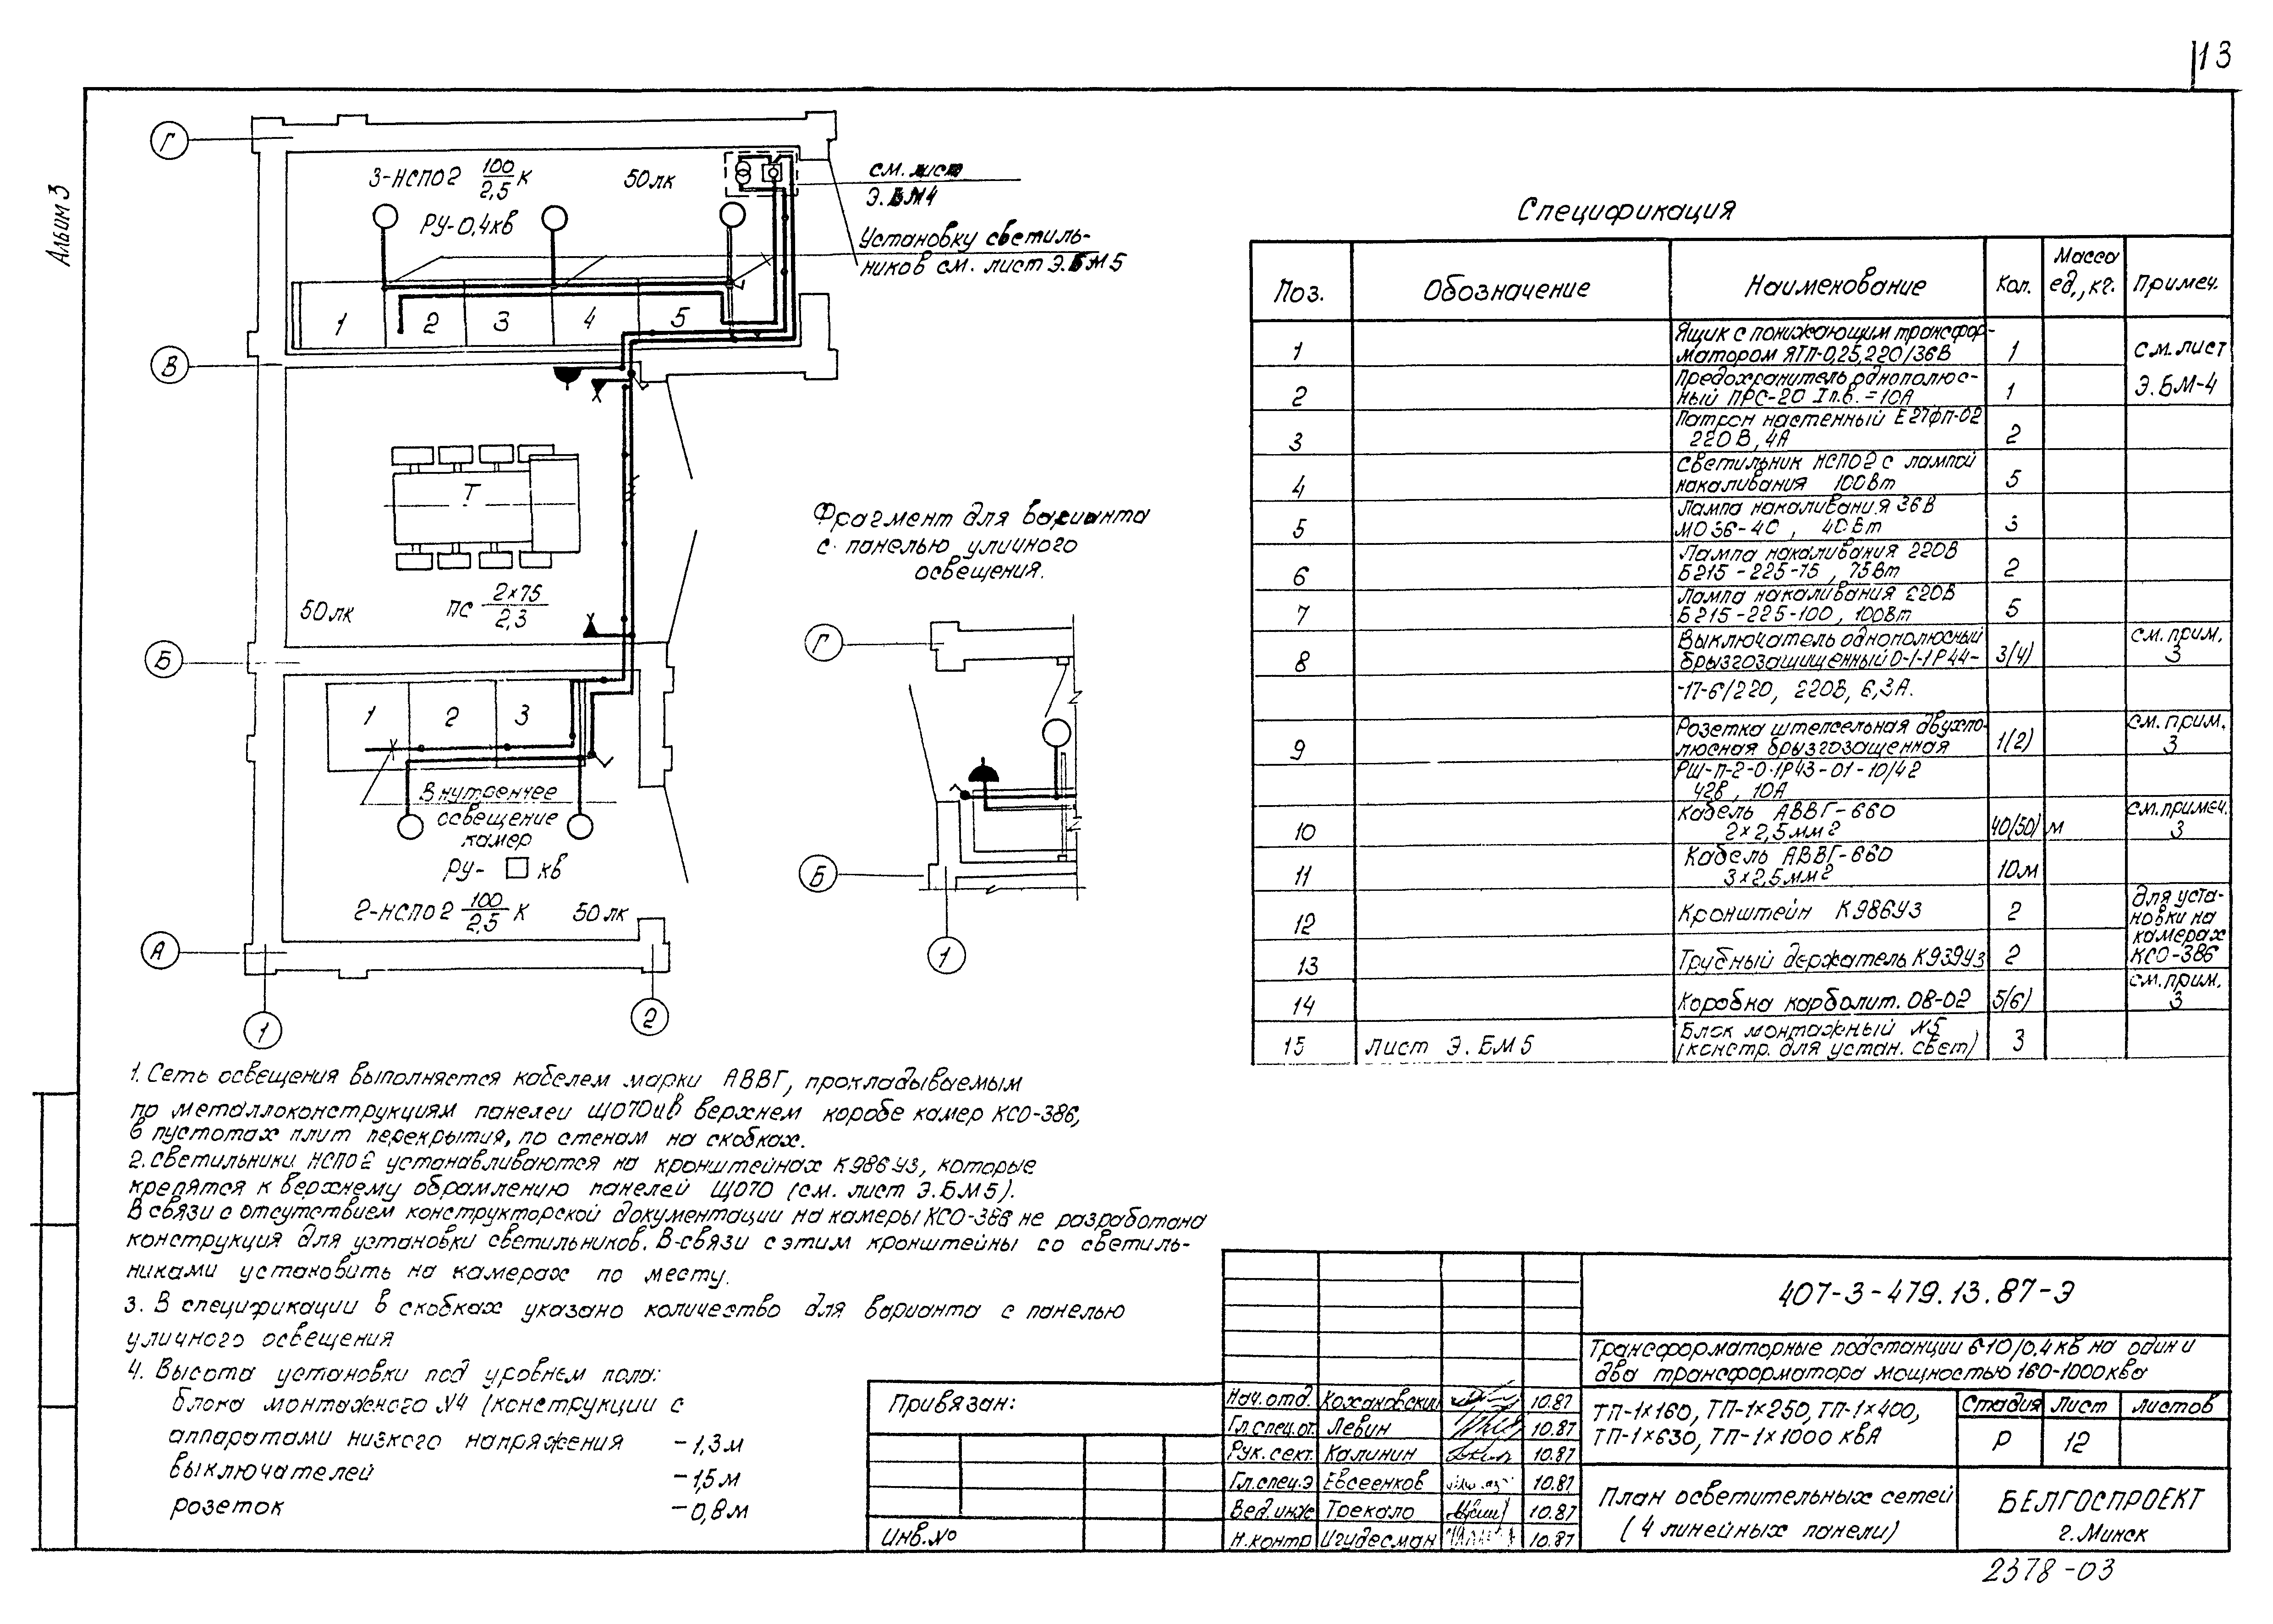 13
Альбом 3
Г
3-НСПО2 100/2,5 К
50лк
РУ-0,4кв
см. лист
Э.БМ4
Установку светиль-
ников см. лист Э.БМ5
1 2 3 4 5
В
Т
50лк
ПС 2×75/2,3
Б
1 2 3
Внутреннее
освещение
камер
РУ- □ кв
2-НСПО2 100/2,5 К
50лк
А
1
2
Фрагмент для варианта
с панелью уличного
освещения.
Г
Б
1
Спецификация
Поз. Обозначение Наименование Кол. Масса ед., кг. Примеч.
1 Ящик с понижающим трансфор-
матором ЯТП-0,25,220/36В 1 см. лист
2 Предохранитель однополюс-
ный ПРС-20 Iп.в.=10А 1 Э.БМ-4
3 Патрон настенный Е27ФП-02
220В, 4А 2
4 Светильник НСПО2 с лампой
накаливания 100Вт 5
5 Лампа накаливания 36В
МО36-40, 40Вт 3
6 Лампа накаливания 220В
Б215-225-75, 75Вт 2
7 Лампа накаливания 220В
Б215-225-100, 100Вт 5
8 Выключатель однополюсный
брызгозащищенный 0-1-1Р44- 3(4) см. прим. 3
-17-6/220, 220В, 6,3А.
9 Розетка штепсельная двухпо-
люсная брызгозащенная 1(2) см. прим. 3
РШ-п-2-0-1Р43-01-10/42
42В, 10А
10 Кабель АВВГ-660
2×2,5мм2 40(50) м см. примеч. 3
11 Кабель АВВГ-660
3×2,5мм2 10м
12 Кронштейн К986У3 2 для уста-
новки на
камерах
13 Трубный держатель К939У3 2 КСО-386
14 Коробка карболит. 08-02 5(6) см. прим. 3
15 Лист Э.БМ5 Блок монтажный №5
(констр. для устан. свет) 3
1. Сеть освещения выполняется кабелем марки АВВГ, прокладываемым
по металлоконструкциям панелей ЩО70 и в верхнем коробе камер КСО-386,
в пустотах плит перекрытия, по стенам на скобках.
2. Светильники НСПО2 устанавливаются на кронштейнах К986У3, которые
крепятся к верхнему обрамлению панелей ЩО70 (см. лист Э.БМ5).
В связи с отсутствием конструкторской документации на камеры КСО-386 не разработана
конструкция для установки светильников. В связи с этим кронштейны со светиль-
никами установить на камерах по месту.
3. В спецификации в скобках указано количество для варианта с панелью
уличного освещения
4. Высота установки под уровнем пола:
блока монтажного №4 (конструкции с
аппаратами низкого напряжения -1,3м
выключателей -1,5м
розеток -0,8м
Привязан:
Инв.№
Нач. отд. Кожановский 10.87
Гл.спец.от. Левин 10.87
Рук. сект. Калинин 10.87
Гл.спец.э Евсеенков 10.87
Вед.инж Трекало 10.87
Н.контр Игудесман 10.87
407-3-479.13.87-Э
Трансформаторные подстанции 6-10/0,4кв на один и
два трансформатора мощностью 160-1000ква
ТП-1×160, ТП-1×250, ТП-1×400,
ТП-1×630, ТП-1×1000 кВА
Стадия Лист Листов
Р 12
План осветительных сетей
(4 линейных панели)
БЕЛГОСПРОЕКТ
г. Минск
2378-03